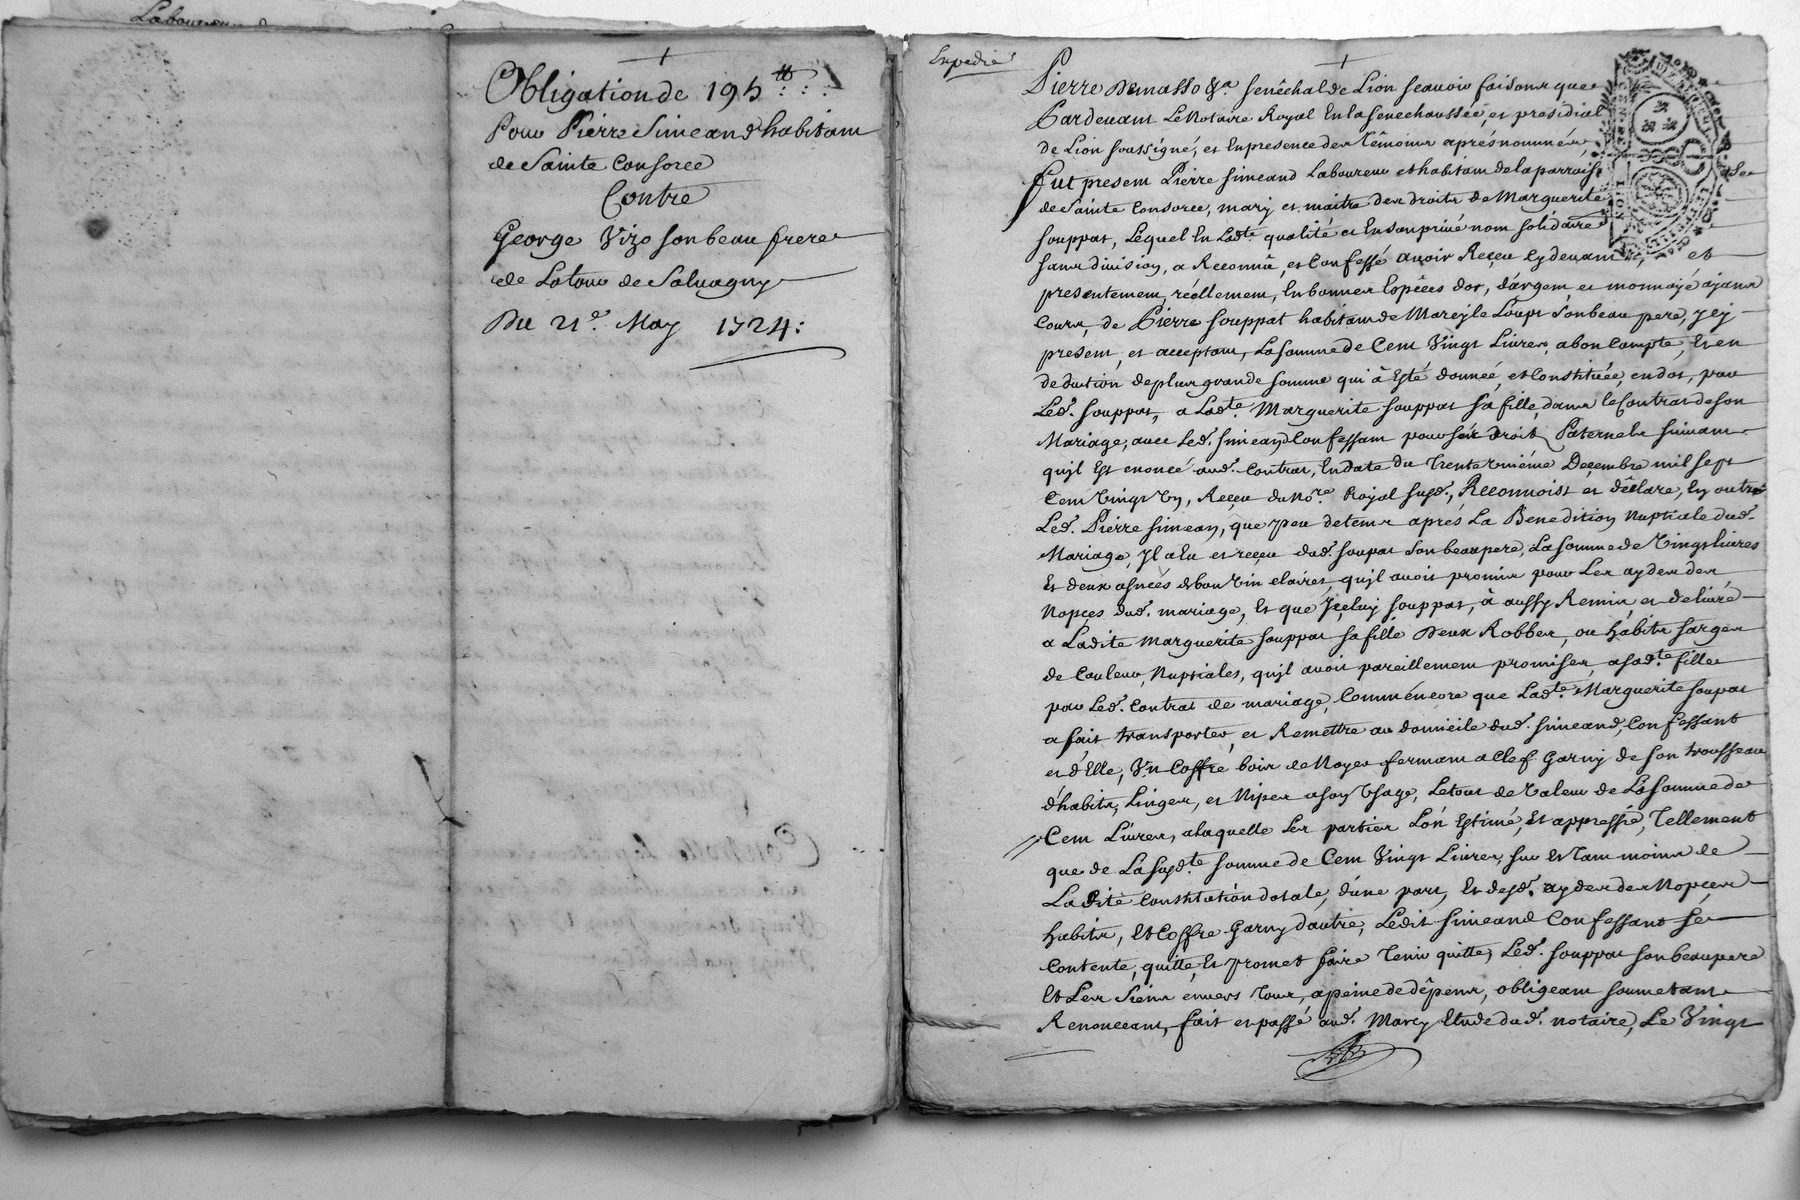 Laboureur
Obligation de 195 ₶
Pour Pierre Simeand habitant
de Sainte Consorce
Contre
George Vizo son beau frere
de Latour de Salvagny
Du 21e. May 1724:
Expedié
Pierre Demasso &a. senêchal de Lion scavoir faisons que
Pardevant Le Notaire Royal En la senechaussée, et presidial
de Lion soussigné, et En presence des têmoins aprés nommés,
fut present Pierre simeand Laboureur et habitant de la parroisse
de Sainte Consorce, mary et maitre des droits de Marguerite
souppat, Lequel En Ladte. qualité et En son privé nom solidaire
sans division, a Reconnû, et Confessé avoir Reçeu cy devant, et
presentement, réellement, En bonnes Espêces d'or, d'argent et monnoye ajans
Cours, de Pierre souppat habitant de Marcy le Loups son beau pere, jcy
present, et acceptant, La somme de Cent Vingt Livres, a bon Compte, et en
deduction de plus grande somme qui â Esté donnée, et Constituée, en dot, par
Led. souppat, a Ladte. Marguerite souppat sa fille, dans le Contrat de son
Mariage, avec Led. simeand Confessant pour ses droits Paternels suivant
qu'jl Est enoncé aud. Contrat, En date du Trente uniéme Decembre mil sept
Cent Vingt Un, Reçeu du Nore. Royal susd., Reconnoist et dêclare, En outre
Led. Pierre simean, que peu de tems aprés La Benediction Nuptiale dud.
Mariage, Jl a Eu et reçeu dud. soupat son beaupere, La somme de Vingt livres
Et deux asnées de bon Vin clairet, qu'jl avoit promis pour Les aydes des
Nopces dud. mariage, Et que Jceluy souppat, à aussy Remis, et delivré
a Ladite Marguerite souppat sa fille Deux Robbes, ou habits sarges
de Couleur, Nuptiales, qu'jl avoit pareillement promises, a sadte. fille
par Led. Contrat de mariage, Comme encore que Ladte. Marguerite soupat
a fait transporter, et Remettre au domicile dud. simeand, Confessant
et d'Elle, Un Coffre bois de Noyer fermant a Clef Garny de son trousseau
d'habits, Linges, et Nipes a son Usage, Le tout de Valeur de La somme de
Cent Livres, a laquelle Les parties L'ón Estimé, Et appressié, Tellement
que de La susdte. somme de Cent Vingt Livres, sur Et tant moins de
La dite Constitution dotale, d'úne part, Et desd. aydes des Nopces
habits, Et Coffre Garny d'autre, Ledit simeand Confessant se
Contente, quitte, Et promet faire Tenir quitte, Led. souppat son beaupere
Et Les Siens envers tous, a peine de dêpens, obligeant soumetant
Renonceant, fait et passé aud. Marcy Etude dud. notaire, Le Vingt